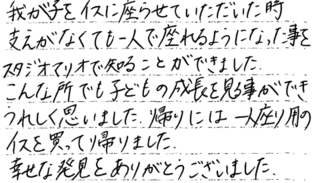 我が子をイスに座らせていただいた時
支えがなくても一人で座れるようになった事を
スタジオマリオで知ることができました.
こんな所でも子どもの成長を見る事ができ
うれしく思いました. 帰りには一人座り用の
イスを買って帰りました.
幸せな発見をありがとうございました.